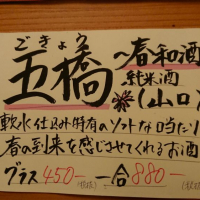 ごきょう
五橋 〜春和酒
純米酒
(山口)
軟水仕込み特有のソフトな口当たり
春の到来を感じさせてくれるお酒
グラス 450ー(税抜) 一合 880ー(税抜)